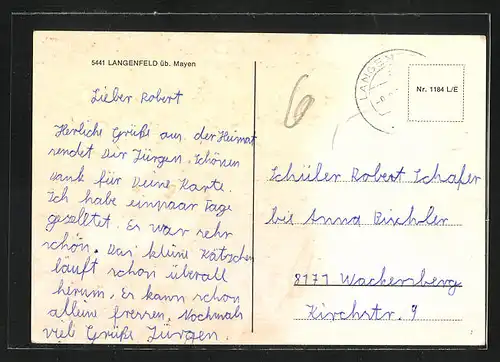 5441 LANGENFELD üb. Mayen
Lieber Robert
Herliche Grüße aus der Heimat
sendet Dir Jürgen. Schönen
dank für Deine Karte.
Ich habe einpaar Tage
gezeltet. Es war sehr
schön. Das kleine Kätzchen
läuft schon überall
herum. Es kann schon
alleine fressen. Nochmals
viele Grüße Jürgen.
6
LANGEN
Nr. 1184 L/E
Schüler Robert Schäfer
bei Anna Büchler
8171 Wackersberg
Kirchstr. 9